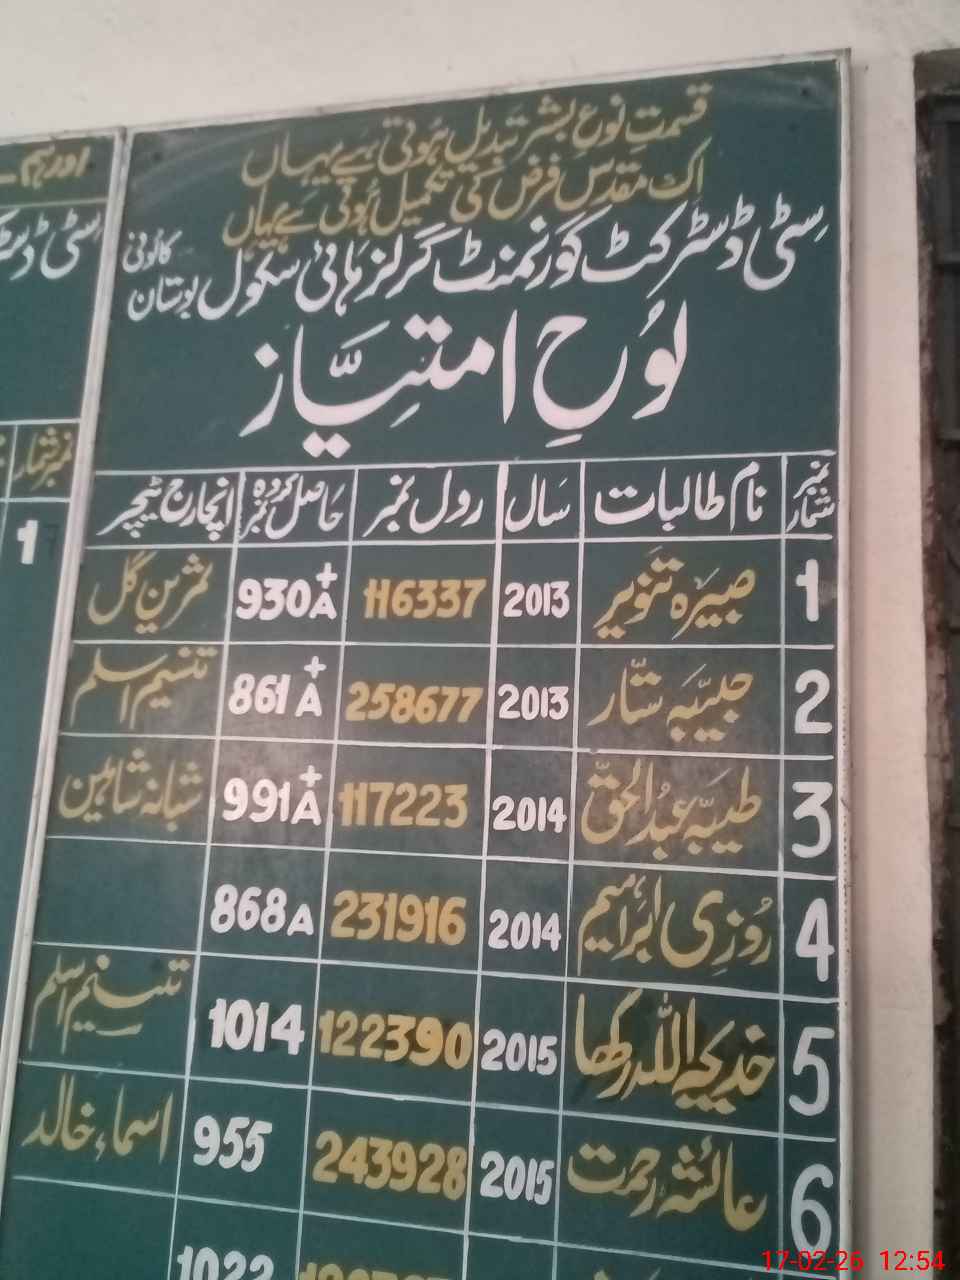 قسمتِ نوعِ بشر تبدیل ہوتی ہے یہاں
اِک مقدس فرض کی تکمیل ہُوتی ہے یہاں
سِٹی ڈسٹرکٹ گورنمنٹ گرلز ہائی سکول بوستان کالونی
لَوحِ امتیاز
نمبر شمار نام طالبات سال رول نمبر حاصل کردہ نمبر انچارج ٹیچر
1 صبیرہ تنویر 2013 116337 930 A+ ثمرین گل
2 حبیبہ ستّار 2013 258677 861 A+ تسنیم اسلم
3 طیبہ عبدُالحق 2014 117223 991 A+ شبانہ شاہین
4 رُوزِی ابراہیم 2014 231916 868 A
5 خدیجہ اللہ رکھا 2015 122390 1014 تسنیم اسلم
6 عائشہ رحمت 2015 243928 955 اسماء خالد
1022
اور ہم
سِٹی
نمبر شمار
1
17-02-26 12:54